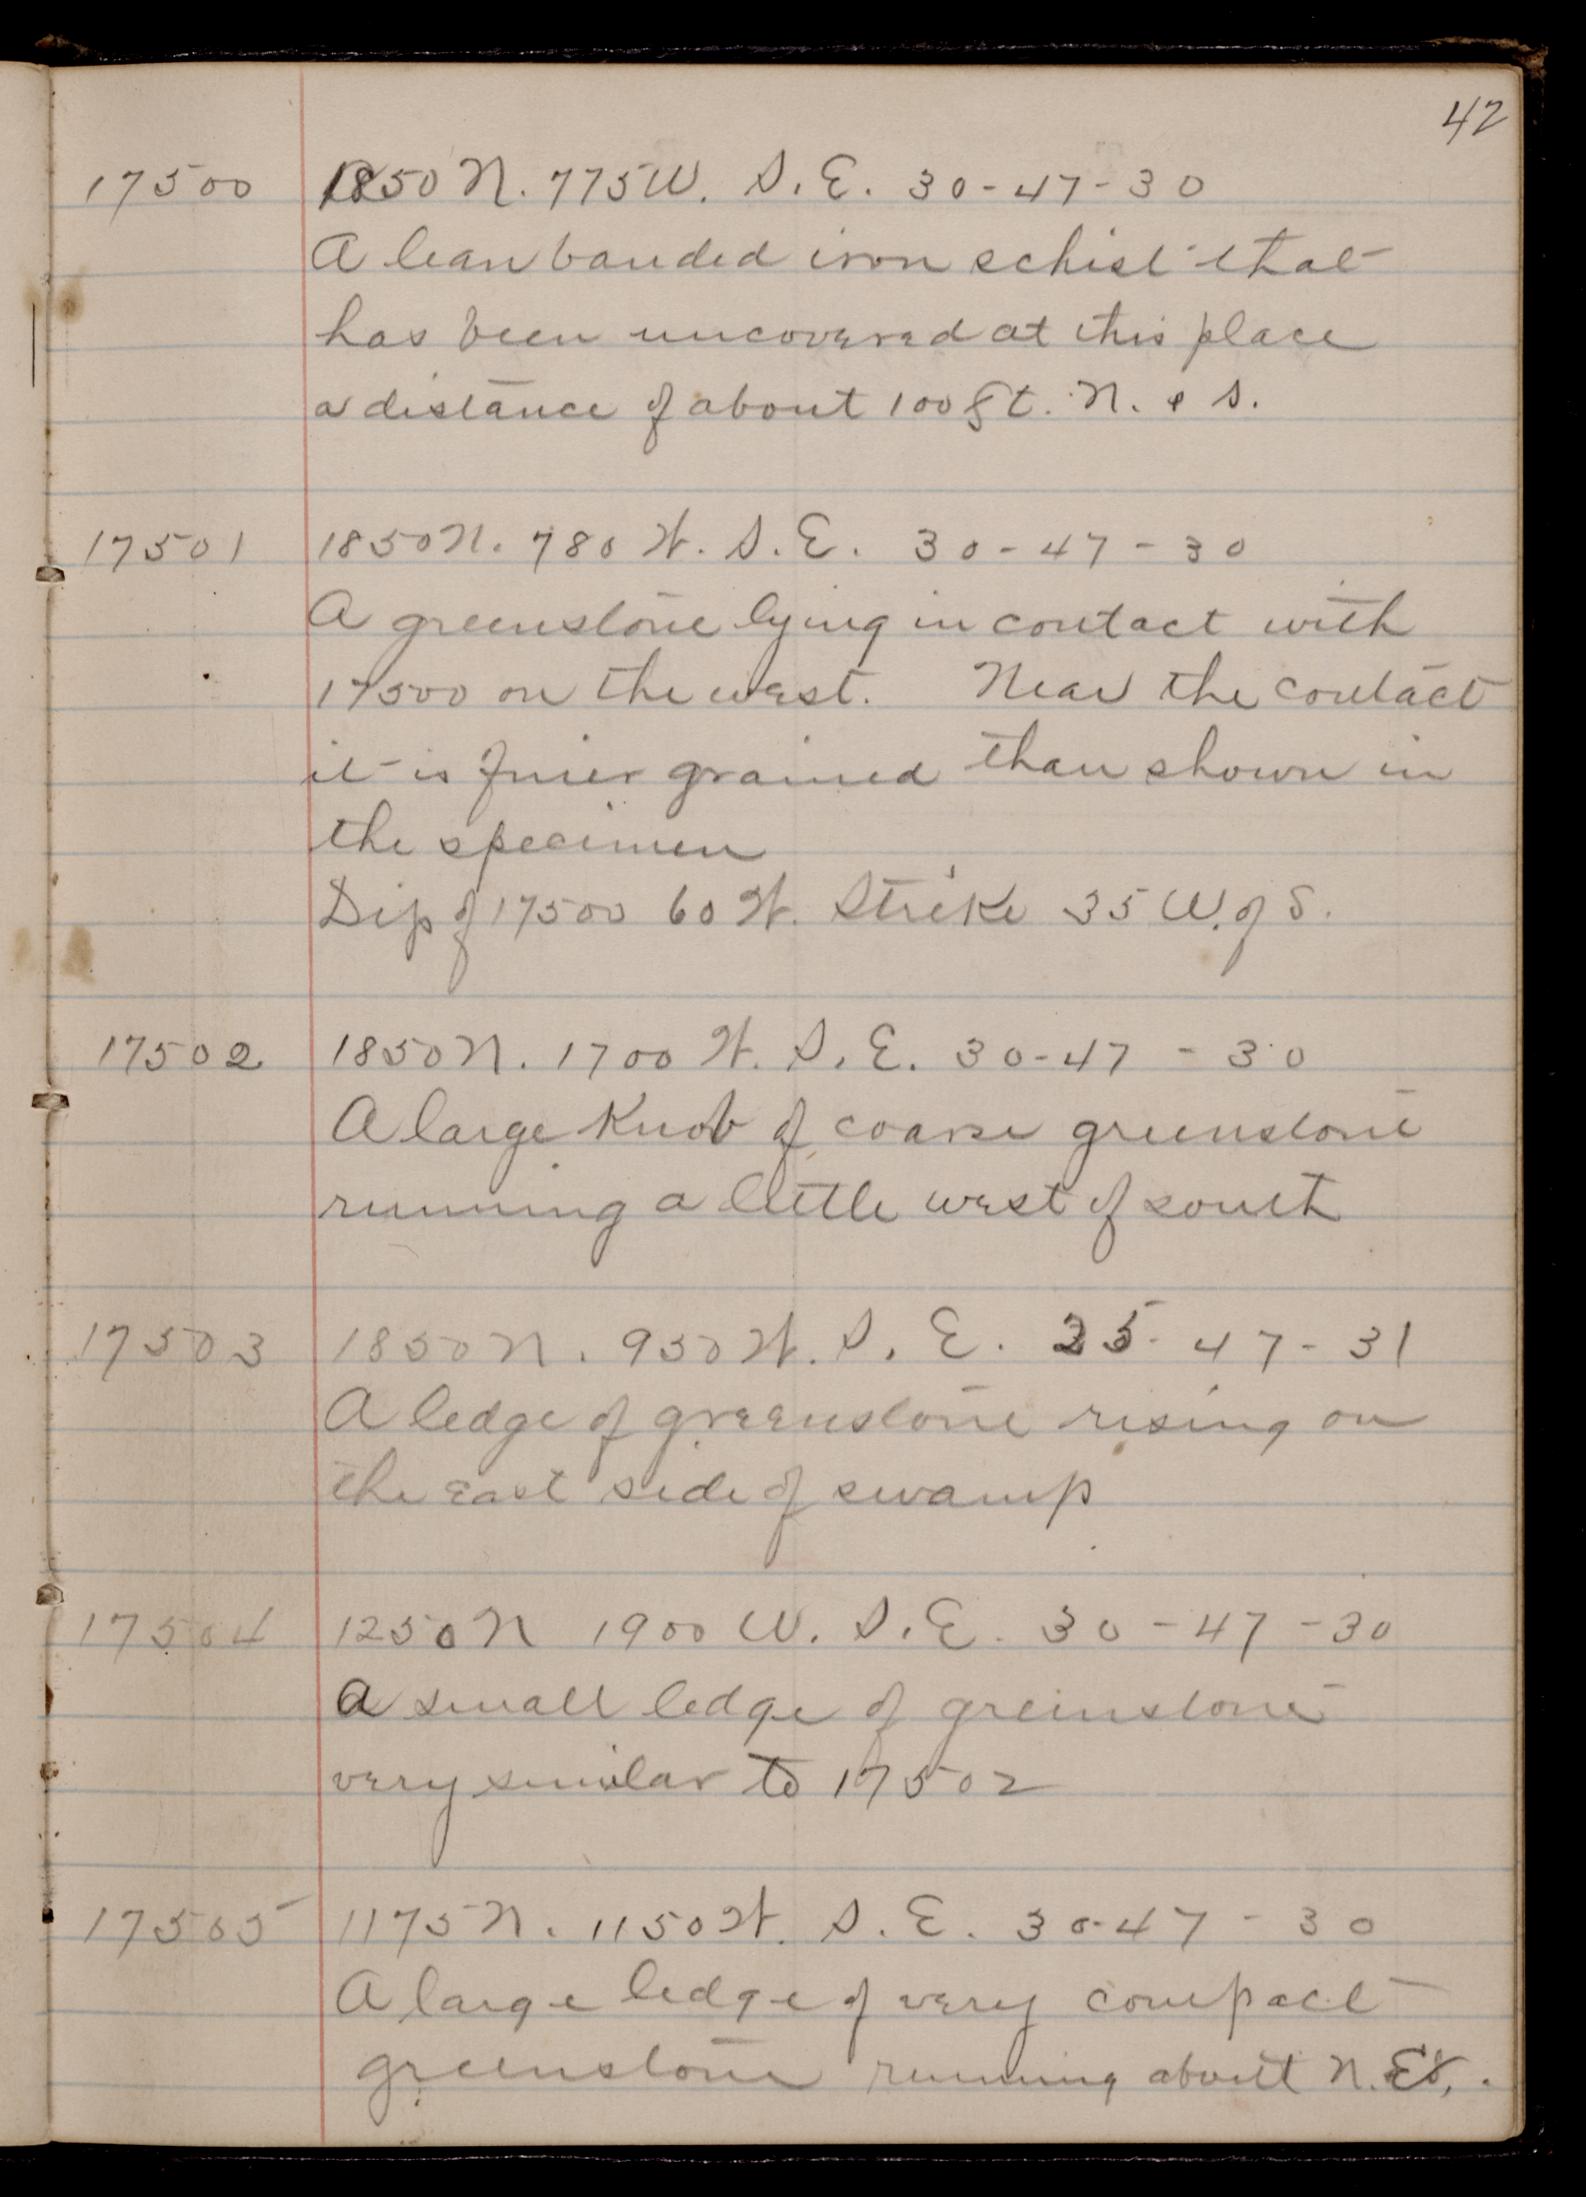 42
17500 1850 N. 775 W. S. E. 30-47-30
A lean banded iron schist that
has been uncovered at this place
a distance of about 100 ft. N. & S.
17501 1850 N. 780 W. S. E. 30-47-30
A greenstone lying in contact with
17500 on the west. Near the contact
it is finer grained than shown in
the specimen
Dip of 17500 60 W. Strike 35 W. of S.
17502 1850 N. 1700 W. S. E. 30-47-30
A large Knob of coarse greenstone
running a little west of south
17503 1850 N. 950 W. S. E. 25-47-31
A ledge of greenstone rising on
the east side of swamp
17504 1250 N 1900 W. S. E. 30-47-30
A small ledge of greenstone
very similar to 17502
17505 1175 N. 1150 W. S. E. 30-47-30
A large ledge of very compact
greenstone running about N.